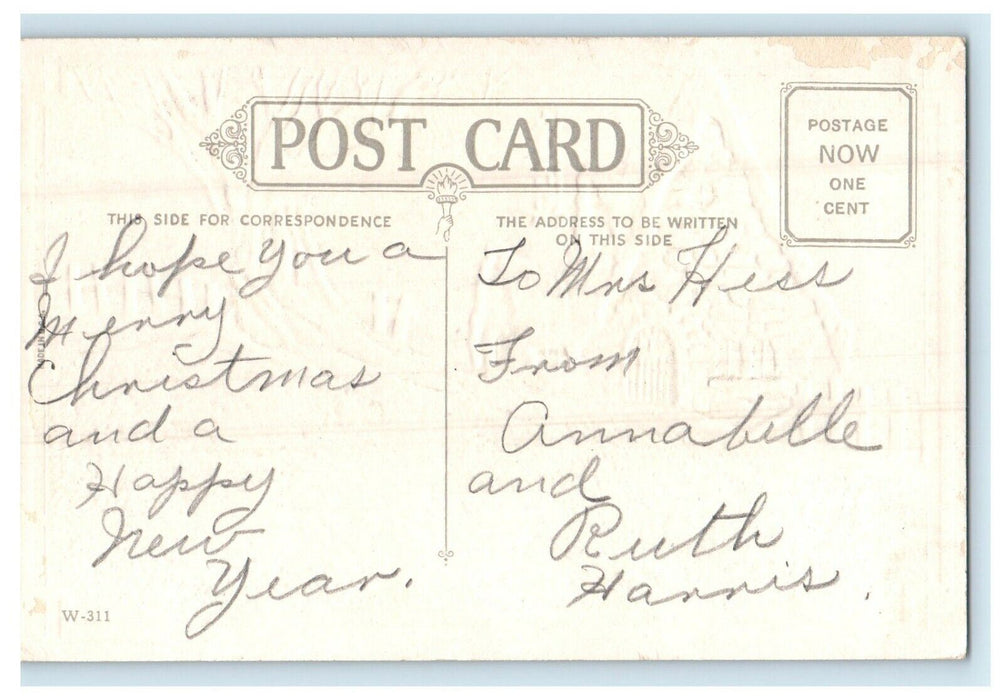 POST CARD
POSTAGE
NOW
ONE
CENT
THIS SIDE FOR CORRESPONDENCE
I hope you a
Merry
Christmas
and a
Happy
New
Year.
W-311
THE ADDRESS TO BE WRITTEN
ON THIS SIDE
To Mrs Hess
From
Annabelle
and
Ruth
Harris.